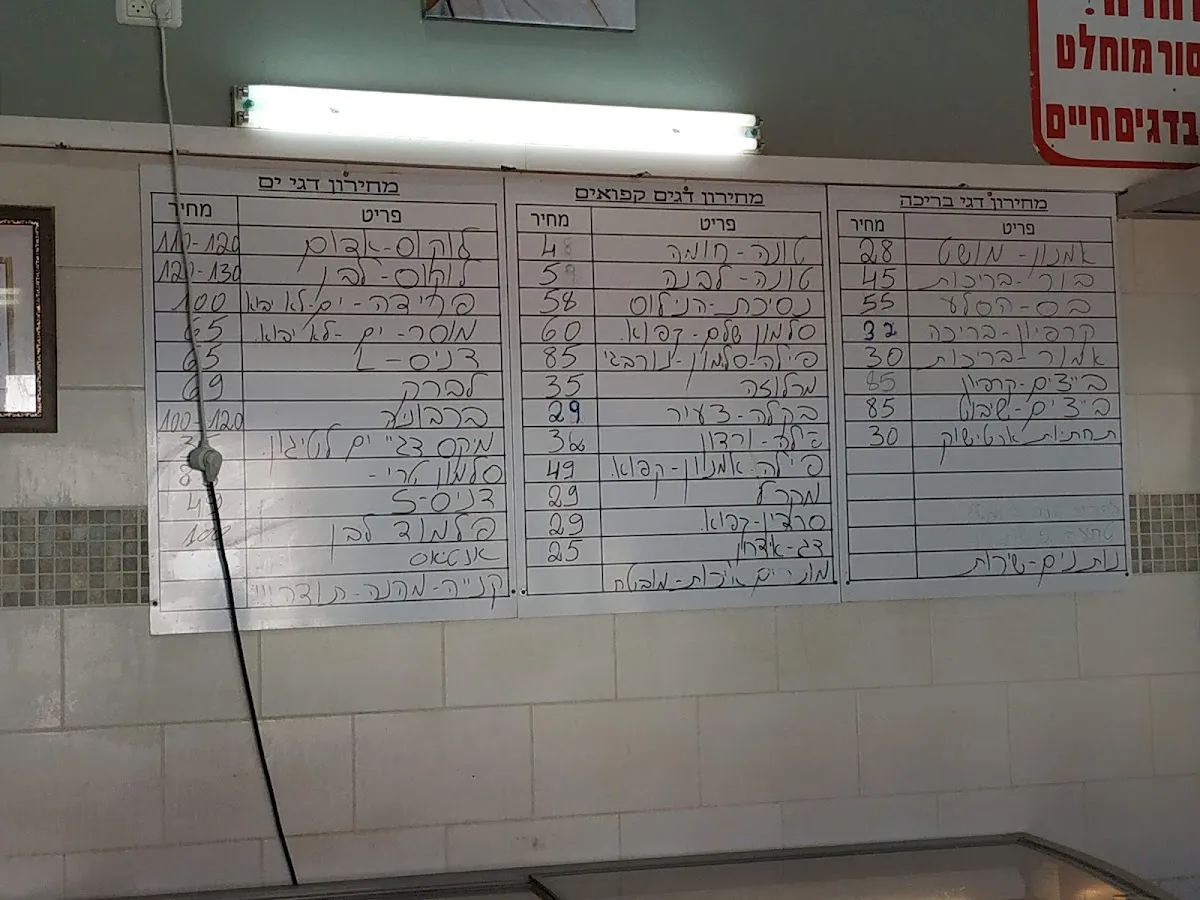 סור מוחלט
בדגים חיים
מחירון דגי בריכה
פריט מחיר
אמנון - מושט 28
בורי - בריכות 45
בס - הסלע 55
קרפיון - בריכה 32
אמור - בריכות 30
ביצים - קרפיון 85
ביצים - שיבוט 85
תחתיות ארטישוק 30
נותנים - שירות
מחירון דגים קפואים
פריט מחיר
טונה - חומה 48
טונה - לבנה 59
נסיכת - הנילוס 58
סלמון שלם - קפוא. 60
פילה - סלמון - נורבגי 85
מרלוזה 35
בקלה - צעיר 29
פילה - ורדון
פילה. אמנון - קפוא. 49
מקרל 29
סרדין - קפוא. 29
דג - אידרוו 25
מוכרים איכות - מובטח
מחירון דגי ים
פריט מחיר
לוקוס - אדום 110-120
לוקוס - לבן 120-130
פרידה - ים - לא יבא 100
מוסר - ים - לא יבוא. 65
דניס - L 65
לברק 69
ברבוניה 100-120
מיקס דגי ים לטיגון.
סלמון טרי -
דניס - S
פילמוד לבן 100
אנטיאס
קנייה - מהנה - תודה !!!